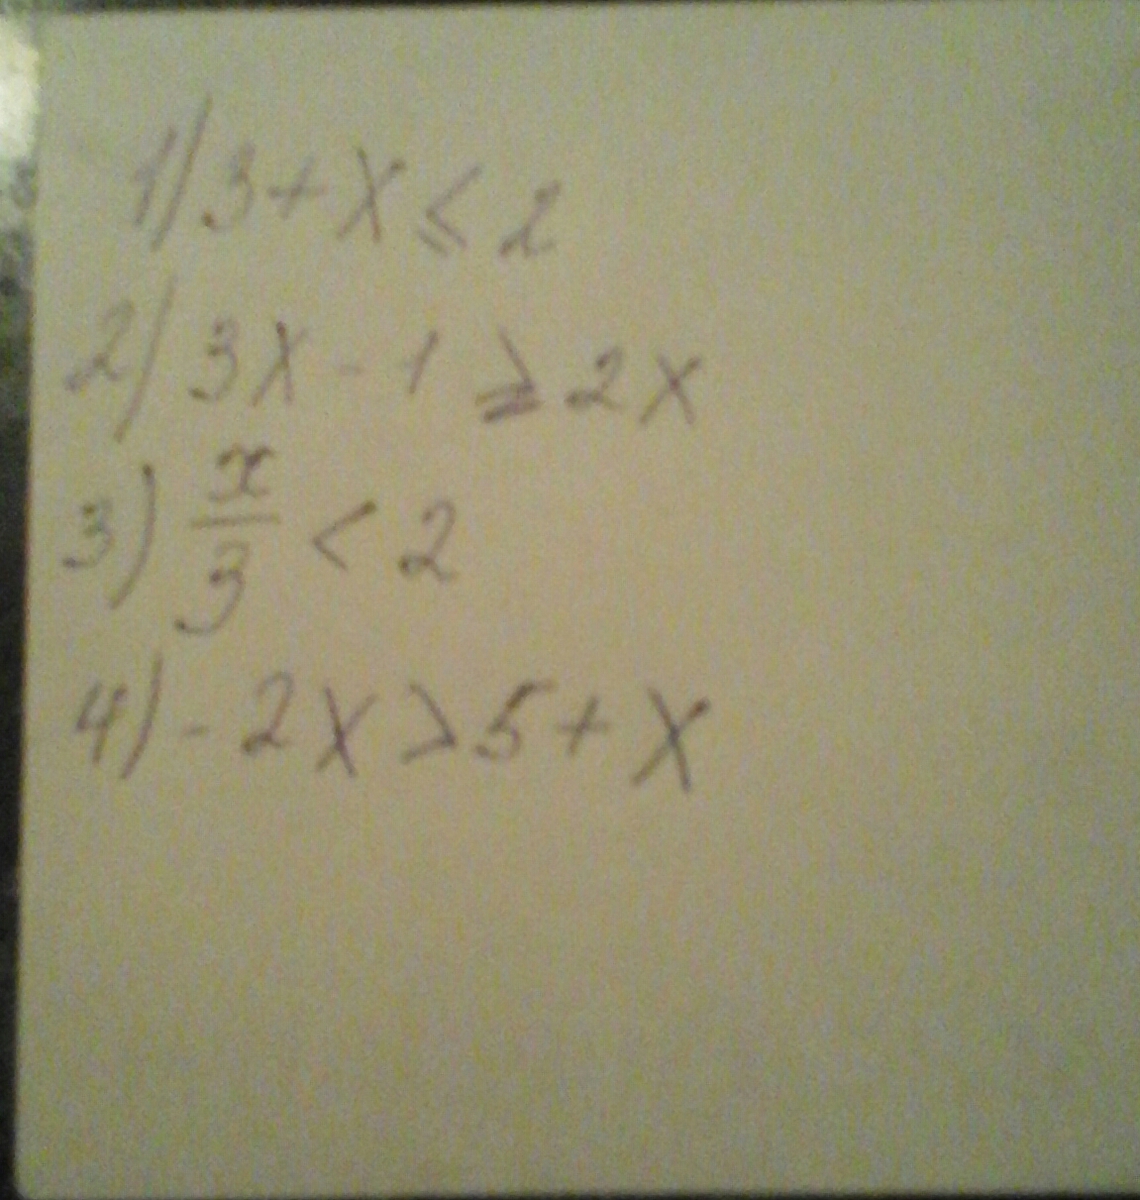 1) 3 + x ≤ 2
2) 3x - 1 ≥ 2x
3) x/3 < 2
4) - 2x > 5 + x